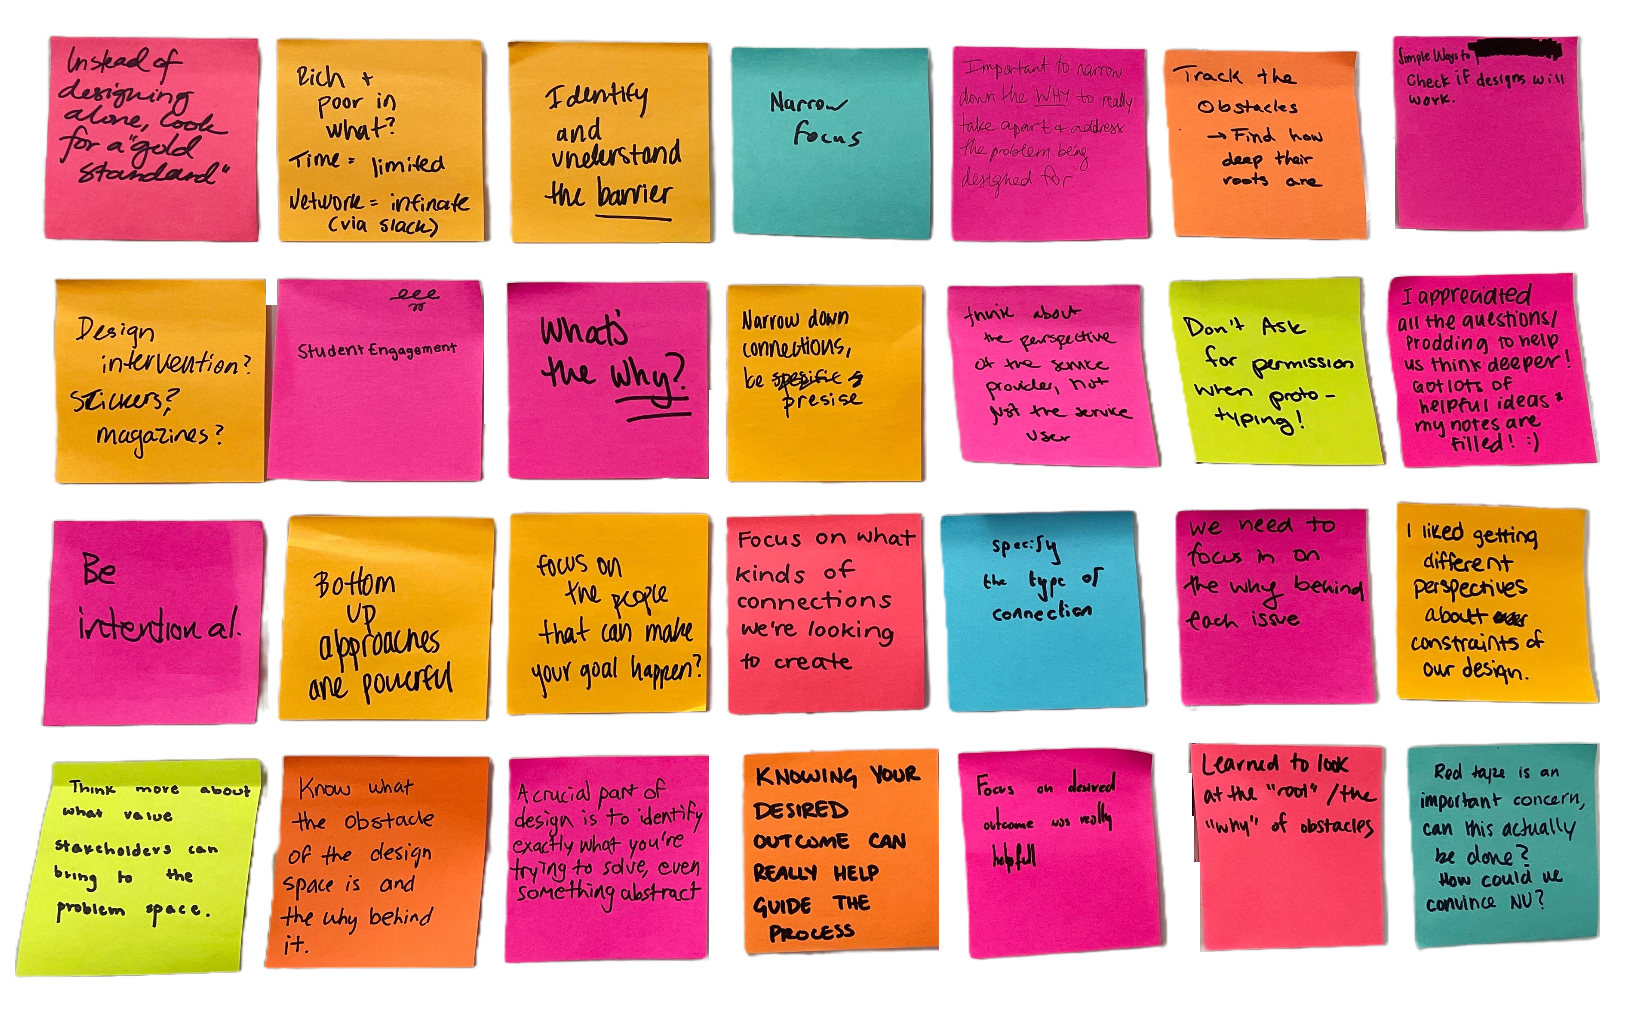 Instead of
designing
alone, look
for a "gold
standard"
Rich +
poor in
what?
Time = limited
Network = infinate
(via slack)
Identify
and
understand
the barrier
Narrow
focus
Important to narrow
down the WHY to really
take apart & address
the problem being
designed for.
Track the
Obstacles
→ Find how
deep their
roots are
Simple Ways to
Check if designs will
work.
Design
intervention?
Stickers?
magazines?
Student Engagement
What's
the why?
Narrow down
connections,
be
presise
think about
the perspective
of the service
provider, not
just the service
user
Don't Ask
for permission
when proto-
typing!
I appreciated
all the questions/
Prodding to help
us think deeper!
Got lots of
helpful ideas &
my notes are
filled! :)
Be
intentional.
Bottom
up
approaches
are powerful
focus on
the people
that can make
your goal happen?
Focus on what
kinds of
connections
we're looking
to create
specify
the type of
connection
we need to
focus in on
the why behind
each issue
I liked getting
different
perspectives
about
constraints of
our design.
Think more about
what value
stakeholders can
bring to the
problem space.
Know what
the obstacle
of the design
space is and
the why behind
it.
A crucial part of
design is to identify
exactly what you're
trying to solve, even
something abstract
KNOWING YOUR
DESIRED
OUTCOME CAN
REALLY HELP
GUIDE THE
PROCESS
Focus on desired
outcome was really
helpfull
Learned to look
at the "root" / the
"why" of obstacles
Red tape is an
important concern,
can this actually
be done?
How could we
convince NU?